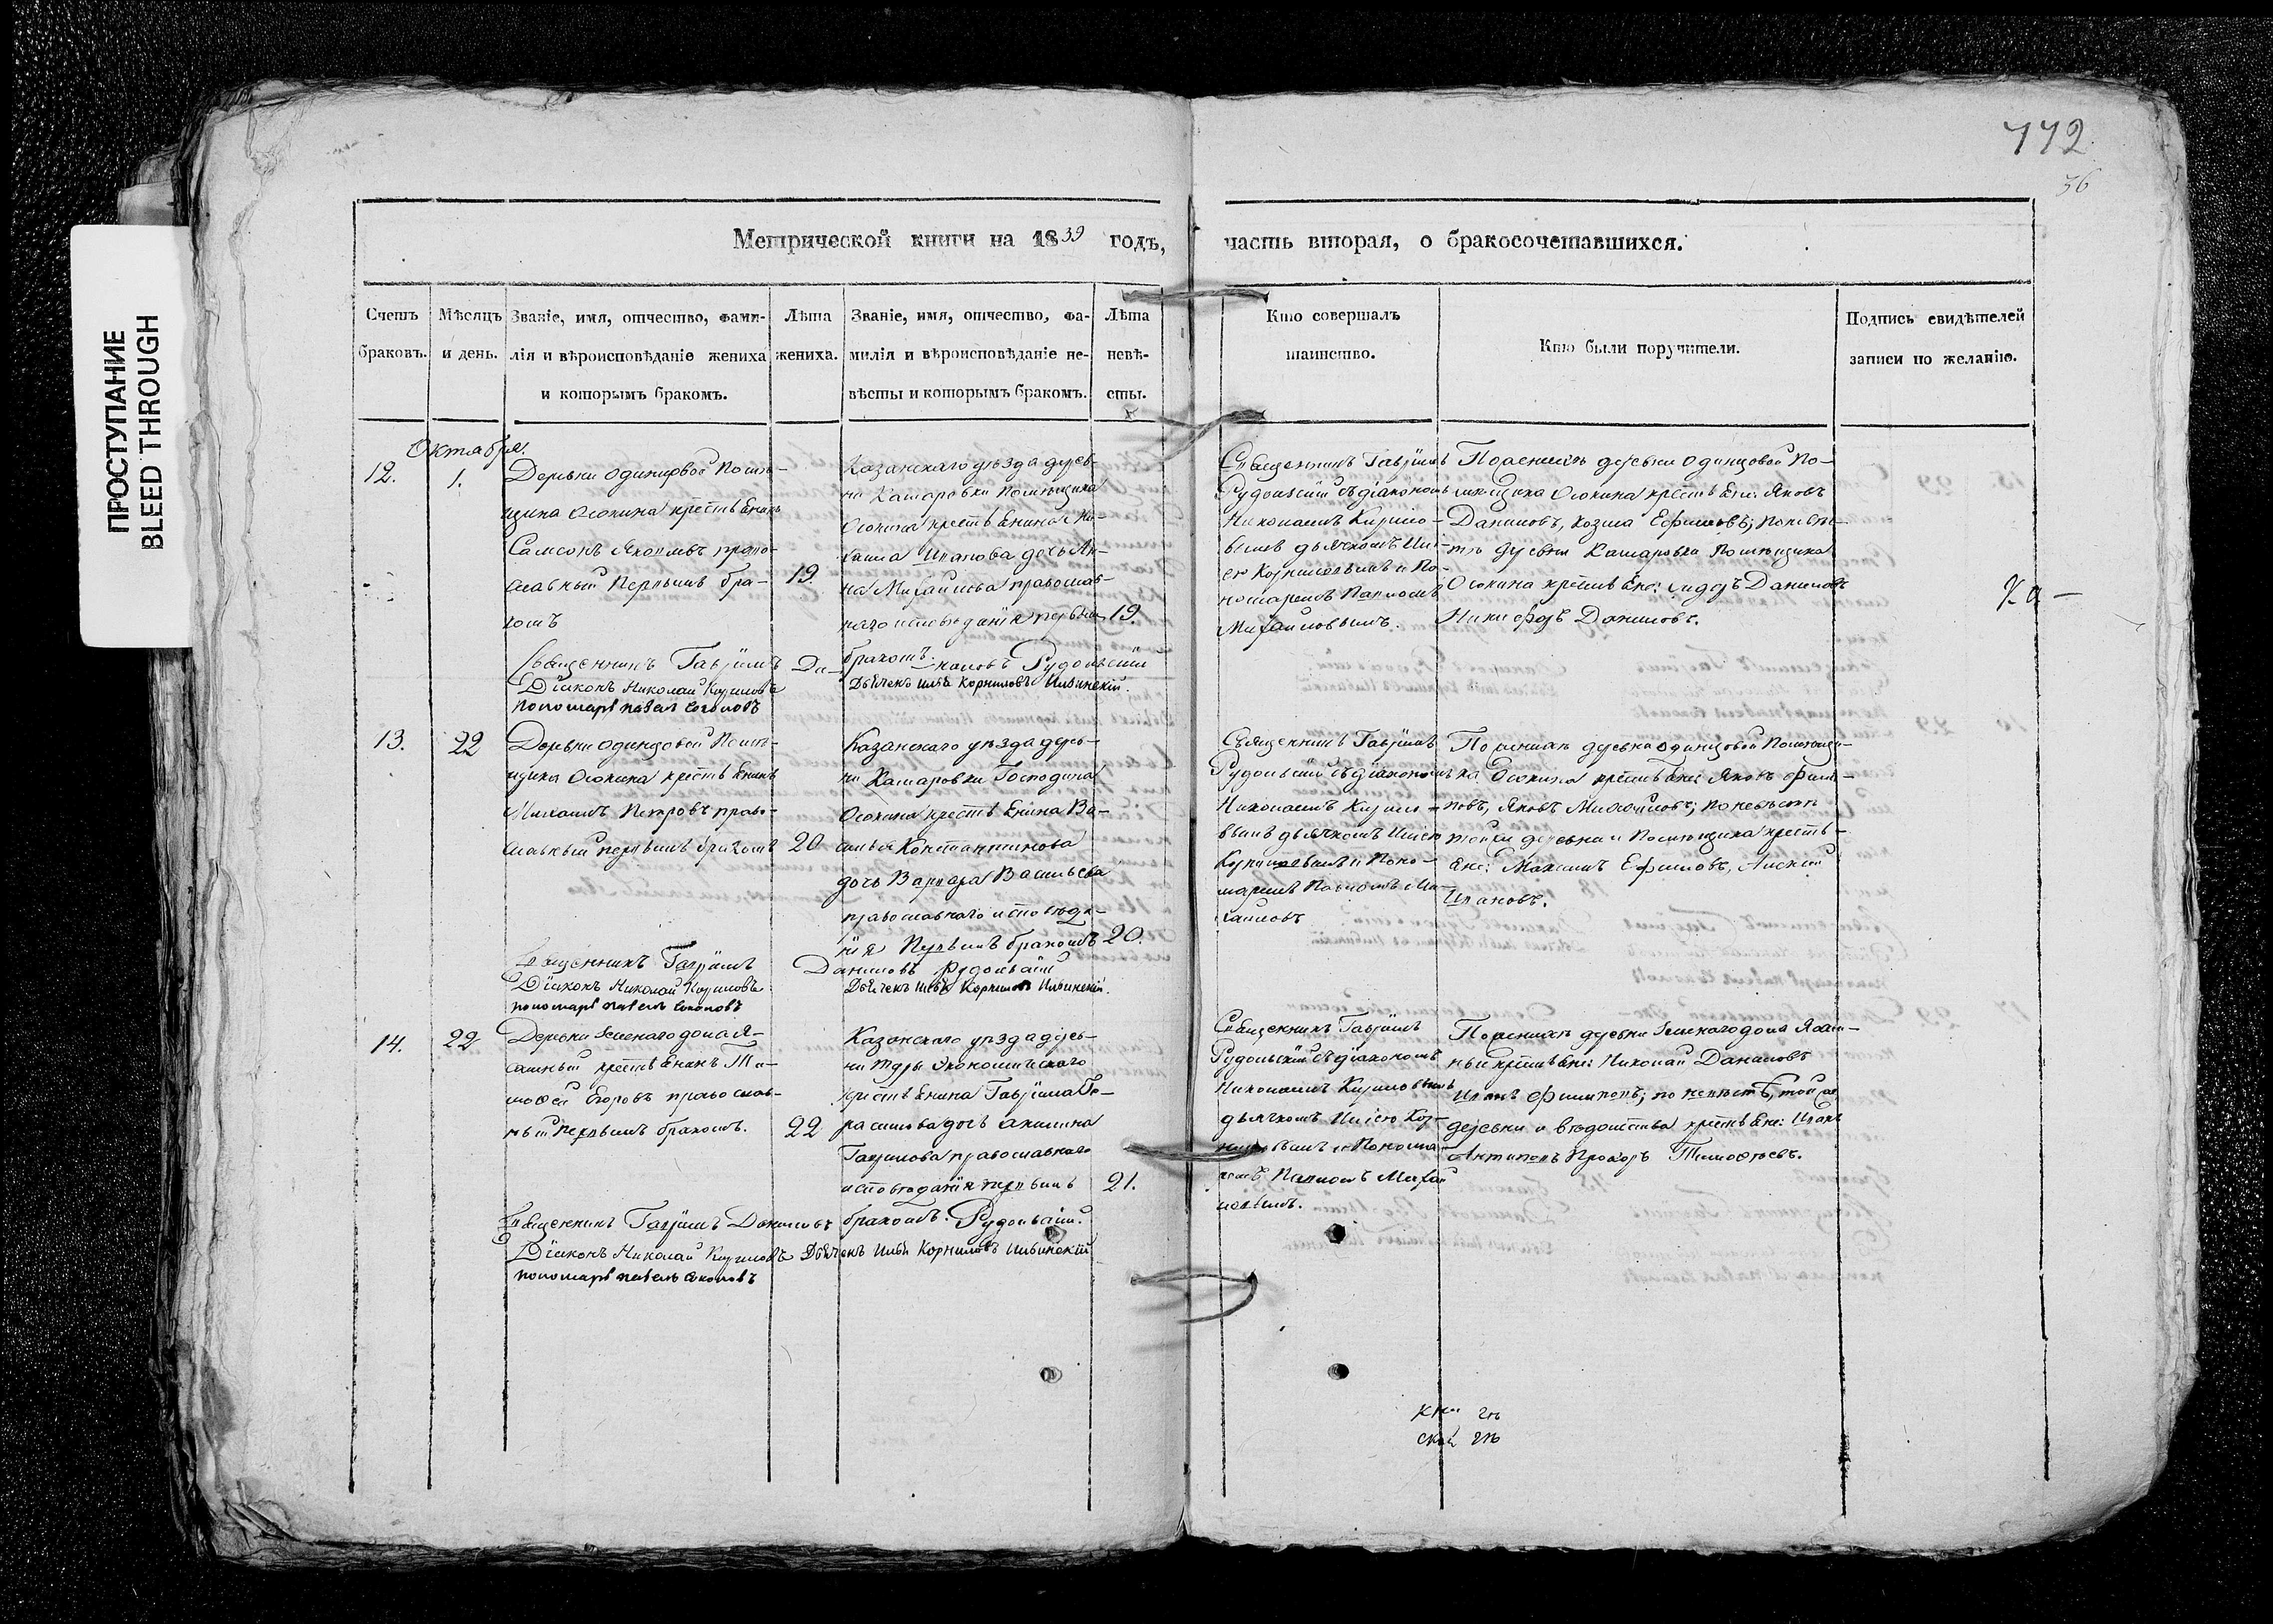 772
36
ПРОСТУПАНИЕ
BLEED THROUGH
Метрической книги на 1839 годъ, часть вторая, о бракосочетавшихся.
Счетъ
браковъ.
Мѣсяцъ
и день.
Званіе, имя, отчество, фами-
лія и вѣроисповѣданіе жениха
и которымъ бракомъ.
Лѣта
жениха.
Званіе, имя, отчество, фа-
милія и вѣроисповѣданіе не-
вѣсты и которымъ бракомъ.
Лѣта
невѣ-
сты.
Кто совершалъ
таинство.
Кто были поручители.
Подпись свидѣтелей
записи по желанію.
Октября.
12.
1.
Деревни Одинцовой помѣ-
щика Осокина крестьянинъ
Самсонъ Яковлевъ право-
славный первымъ бра-
комъ
19.
Казанскаго уѣзда дерев-
ни Камаровки помѣщика
Осокина крестьянина Ми-
хаила Иванова дочь Ан-
на Михайлова православ-
наго исповѣданія первымъ
бракомъ.
19.
Священникъ Гавріилъ
Рудольскій съ діакономъ
Николаемъ Кирило-
вымъ дьячкомъ Иль-
ею Корниловымъ и По-
номаремъ Павломъ
Михайловымъ.
По женихѣ деревни Одинцовой По-
мѣщика Осокина крестьяне: Яковъ
Даниловъ, Козма Ефимовъ; по невѣс-
тѣ деревни Камаровки Помѣщика
Осокина крестьяне: Сидоръ Даниловъ
Никифоръ Даниловъ.
Священникъ Гавріилъ Даниловъ Рудольскій
Діаконъ Николай Кириловъ
Дьячекъ Илья Корниловъ Ильинскій.
пономарь павелъ соколовъ
13.
22
Деревни Одинцовой Помѣ-
щика Осокина крестьянинъ
Михаилъ Петровъ право-
славный первымъ бракомъ
20
Казанскаго уѣзда дерев-
ни Камаровки Господина
Осокина крестьянина Ва-
силья Константинова
дочь Варвара Васильева
православнаго исповѣда-
нія Первымъ бракомъ
20.
Священникъ Гавріилъ
Рудольскій съ діакономъ
Николаемъ Кирило-
вымъ дьячкомъ Ильею
Корниловымъ и Поно-
маремъ Павломъ Ми-
хайловъ
По женихѣ деревни Одинцовой Помѣщи-
ка Осокина крестьяне: Яковъ Фили-
повъ, Яковъ Михайловъ; по невѣстѣ
той же деревни и Помѣщика кресть-
яне: Максимъ Ефимовъ, Алексѣй
Ивановъ.
Священникъ Гавріилъ Даниловъ Рудольскій
Діаконъ Николай Кириловъ
Дьячекъ Илья Корниловъ Ильинскій.
пономарь павелъ соколовъ
14.
22
Деревни Зеленаго дола Я-
сашный крестьянинъ Ти-
мофей Егоровъ православ-
ный первымъ бракомъ.
22
Казанскаго уѣзда дерев-
ни Туры Экономическаго
крестьянина Гавріила Ге-
расимова дочь Акилина
Гаврилова православнаго
исповѣданія первымъ
бракомъ.
21.
Священникъ Гавріилъ
Рудольскій съ діакономъ
Николаемъ Кириловымъ
дьячкомъ Ильею Кор-
ниловымъ и Понома-
ремъ Павломъ Михай
ловымъ.
По женихѣ деревни Зеленаго дола Ясаш-
ные крестьяне: Николай Даниловъ
Иванъ Филиповъ; по невѣстѣ, той же
деревни и вѣдомства крестьяне: Иванъ
Антиповъ Прохоръ Тимофеевъ.
Священникъ Гавріилъ Даниловъ Рудольскій.
Діаконъ Николай Кириловъ Дьячекъ Илья Корниловъ Ильинскій
пономарь павелъ соколовъ